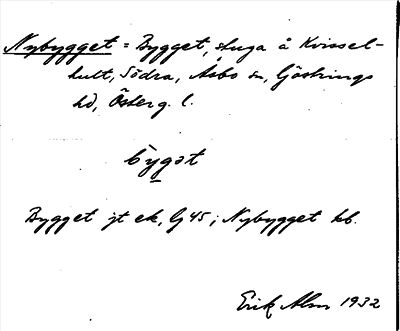 Nybygget = Bygget, stuga å Kvissel-
hult, Södra, Åsbo sn, Göstrings
hd, Österg. l.
bygət
Bygget jt ek, Gj 45; Nybygget kb.
Erik Alm 1932